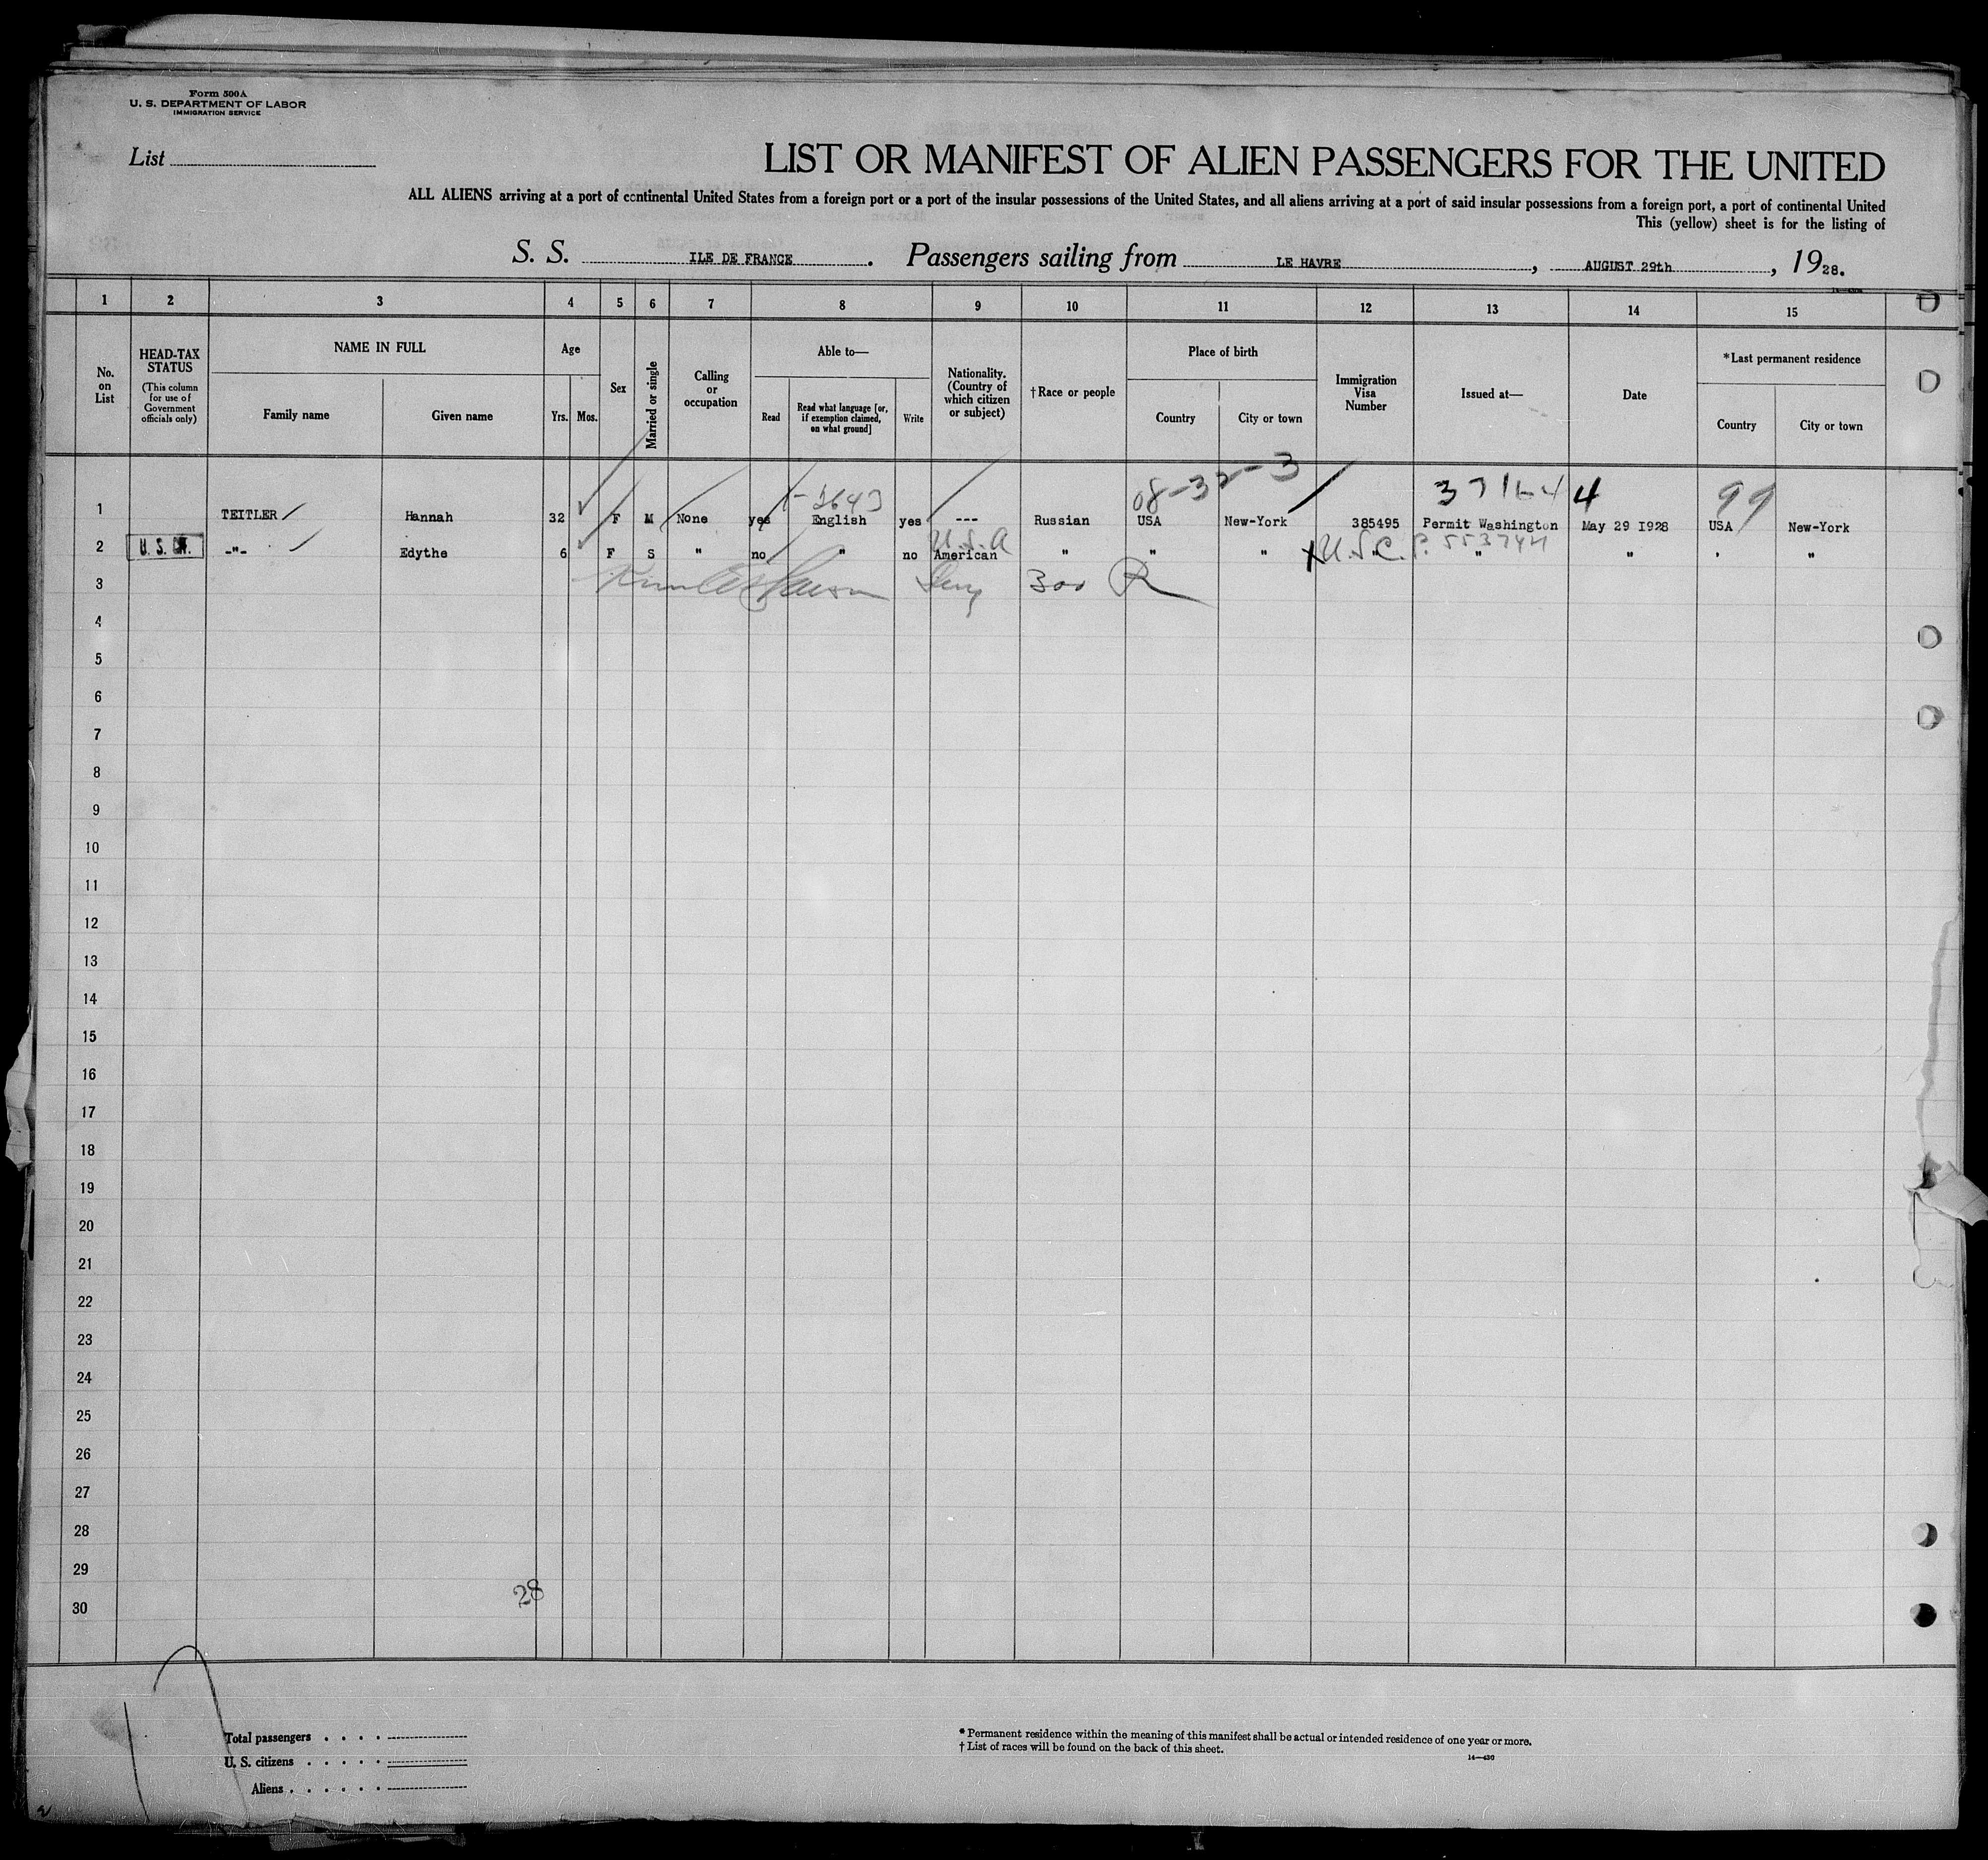 Form 500A
U. S. DEPARTMENT OF LABOR
IMMIGRATION SERVICE
List
LIST OR MANIFEST OF ALIEN PASSENGERS FOR THE UNITED
ALL ALIENS arriving at a port of continental United States from a foreign port or a port of the insular possessions of the United States, and all aliens arriving at a port of said insular possessions from a foreign port, a port of continental United
This (yellow) sheet is for the listing of
S. S. ILE DE FRANCE. Passengers sailing from LE HAVRE, AUGUST 29th, 1928.
1 2 3 4 5 6 7 8 9 10 11 12 13 14 15
No. on List
HEAD-TAX STATUS
(This column for use of Government officials only)
NAME IN FULL
Family name Given name
Age
Yrs. Mos.
Sex
Married or single
Calling or occupation
Able to—
Read Read what language [or, if exemption claimed, on what ground] Write
Nationality. (Country of which citizen or subject)
† Race or people
Place of birth
Country City or town
Immigration Visa Number
Issued at—
Date
*Last permanent residence
Country City or town
08-32-3 37164 4 99
1 TEITLER Hannah 32 F M None yes English yes --- Russian USA New-York 385495 Permit Washington May 29 1928 USA New-York
U.S.A
2 U. S. -"- Edythe 6 F S " no " no American " " " " " " " "
U.S.C. P. 553744
3 300 R
4
5
6
7
8
9
10
11
12
13
14
15
16
17
18
19
20
21
22
23
24
25
26
27
28
29
30
28
Total passengers . . . .
U. S. citizens . . . . .
Aliens . . . . . .
* Permanent residence within the meaning of this manifest shall be actual or intended residence of one year or more.
† List of races will be found on the back of this sheet.
14—430